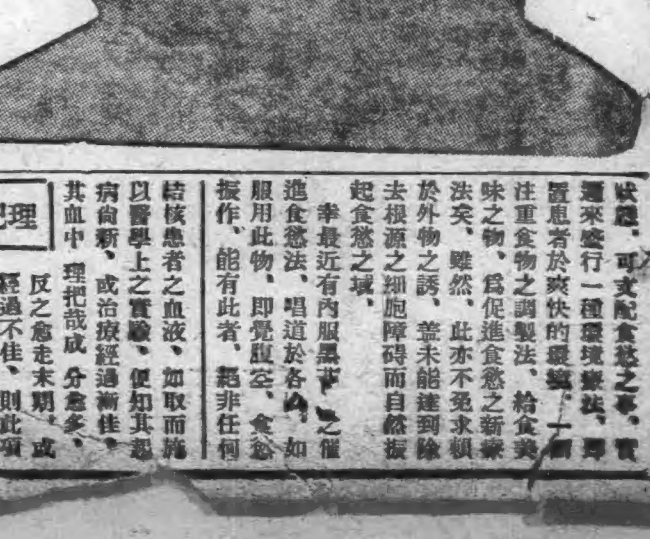 狀態、可支配食慾之事、實
邇來盛行一種環境療法、即
置患者於爽快的環境、一面
注重食物之調製法、給食美
味之物、爲促進食慾之新療
法矣、雖然、此亦不免求賴
於外物之誘、蓋未能達到除
去根源之細胞障碍而自然振
起食慾之域、
幸最近有內服黑 之催
進食慾法、唱道於各 、如
服用此物、即覺腹空、食慾
振作、能有此者、絕非任何
結核患者之血液、如取而施
以醫學上之實驗、便知其起
病尙新、或治療經過漸佳、
其血中 理把哉成 分愈多、
反之愈走末期、或
經過不佳、則此項
理